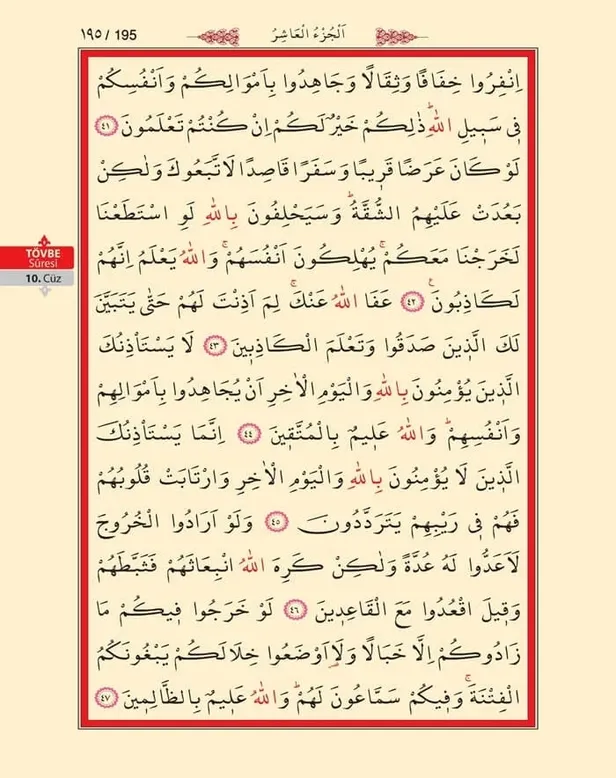 ١٩٥ / 195
اَلْجُزْءُ الْعَاشِرُ
اِنْفِرُوا خِفَافًا وَثِقَالًا وَجَاهِدُوا بِاَمْوَالِكُمْ وَاَنْفُسِكُمْ
فٖى سَبٖيلِ اللّٰهِۜ ذٰلِكُمْ خَيْرٌ لَكُمْ اِنْ كُنْتُمْ تَعْلَمُونَ ٤١
لَوْ كَانَ عَرَضًا قَرٖيبًا وَسَفَرًا قَاصِدًا لَاتَّبَعُوكَ وَلٰكِنْ
بَعُدَتْ عَلَيْهِمُ الشُّقَّةُۜ وَسَيَحْلِفُونَ بِاللّٰهِ لَوِ اسْتَطَعْنَا
لَخَرَجْنَا مَعَكُمْۚ يُهْلِكُونَ اَنْفُسَهُمْۚ وَاللّٰهُ يَعْلَمُ اِنَّهُمْ
لَكَاذِبُونَ۟ ٤٢ عَفَا اللّٰهُ عَنْكَۚ لِمَ اَذِنْتَ لَهُمْ حَتّٰى يَتَبَيَّنَ
لَكَ الَّذٖينَ صَدَقُوا وَتَعْلَمَ الْكَاذِبٖينَ ٤٣ لَا يَسْتَاْذِنُكَ
الَّذٖينَ يُؤْمِنُونَ بِاللّٰهِ وَالْيَوْمِ الْاٰخِرِ اَنْ يُجَاهِدُوا بِاَمْوَالِهِمْ
وَاَنْفُسِهِمْۜ وَاللّٰهُ عَلٖيمٌ بِالْمُتَّقٖينَ ٤٤ اِنَّمَا يَسْتَاْذِنُكَ
الَّذٖينَ لَا يُؤْمِنُونَ بِاللّٰهِ وَالْيَوْمِ الْاٰخِرِ وَارْتَابَتْ قُلُوبُهُمْ
فَهُمْ فٖى رَيْبِهِمْ يَتَرَدَّدُونَ ٤٥ وَلَوْ اَرَادُوا الْخُرُوجَ
لَاَعَدُّوا لَهُ عُدَّةً وَلٰكِنْ كَرِهَ اللّٰهُ انْبِعَاثَهُمْ فَثَبَّطَهُمْ
وَقٖيلَ اقْعُدُوا مَعَ الْقَاعِدٖينَ ٤٦ لَوْ خَرَجُوا فٖيكُمْ مَا
زَادُوكُمْ اِلَّا خَبَالًا وَلَا۬اَوْضَعُوا خِلَالَكُمْ يَبْغُونَكُمُ
الْفِتْنَةَۚ وَفٖيكُمْ سَمَّاعُونَ لَهُمْۜ وَاللّٰهُ عَلٖيمٌ بِالظَّالِمٖينَ ٤٧
TÖVBE
Sûresi
10. Cüz